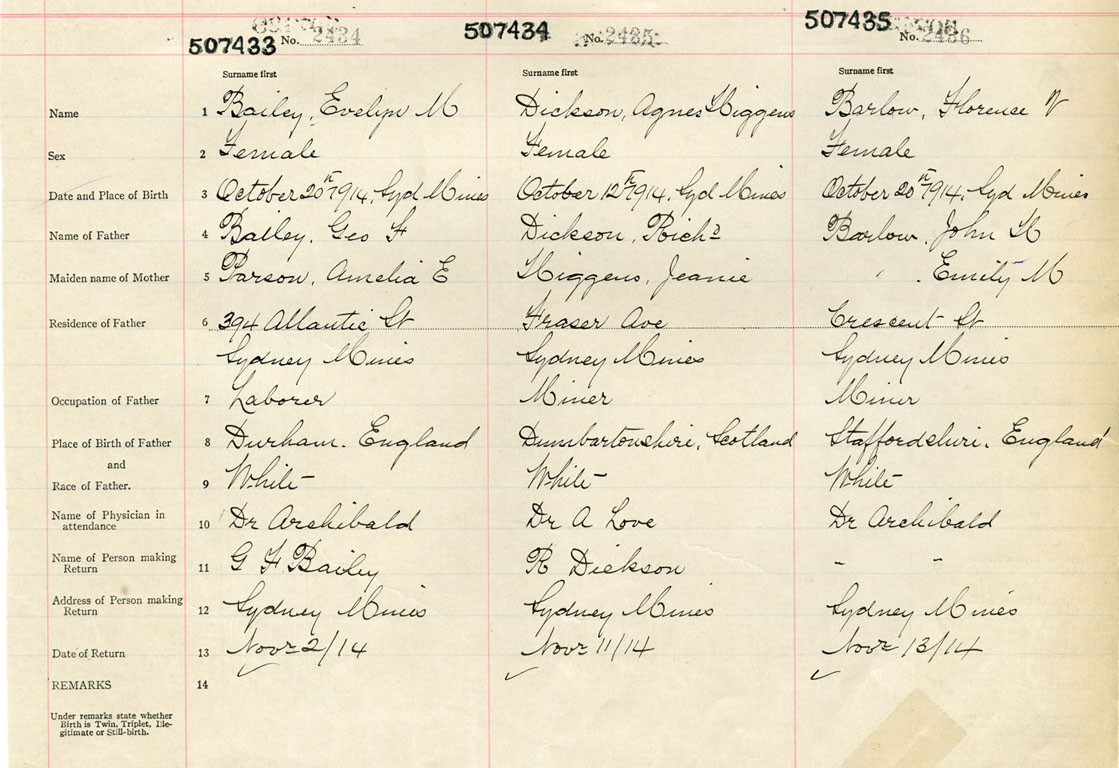 507433 No. 2434 507434 No. 2435 507435 No. 2436
Surname first Surname first Surname first
Name 1 Bailey, Evelyn M Dickson, Agnes Higgens Barlow, Florence V
Sex 2 Female Female Female
Date and Place of Birth 3 October 20th 1914, Syd Mines October 12th 1914, Syd Mines October 20th 1914, Syd Mines
Name of Father 4 Bailey, Geo F Dickson, Richd Barlow, John H
Maiden name of Mother 5 Parson, Amelia E Higgens, Jeanie " Emily M
Residence of Father 6 394 Atlantic St Fraser Ave Crescent St
Sydney Mines Sydney Mines Sydney Mines
Occupation of Father 7 Laborer Miner Miner
Place of Birth of Father 8 Durham. England Dumbartonshire, Scotland Staffordshire, England
and
Race of Father. 9 White White White
Name of Physician in
attendance 10 Dr Archibald Dr A Love Dr Archibald
Name of Person making
Return 11 G F Bailey R Dickson " "
Address of Person making
Return 12 Sydney Mines Sydney Mines Sydney Mines
Date of Return 13 Novr 2/14 Novr 11/14 Novr 13/14
REMARKS 14
Under remarks state whether
Birth is Twin, Triplet, Ille-
gitimate or Still-birth.